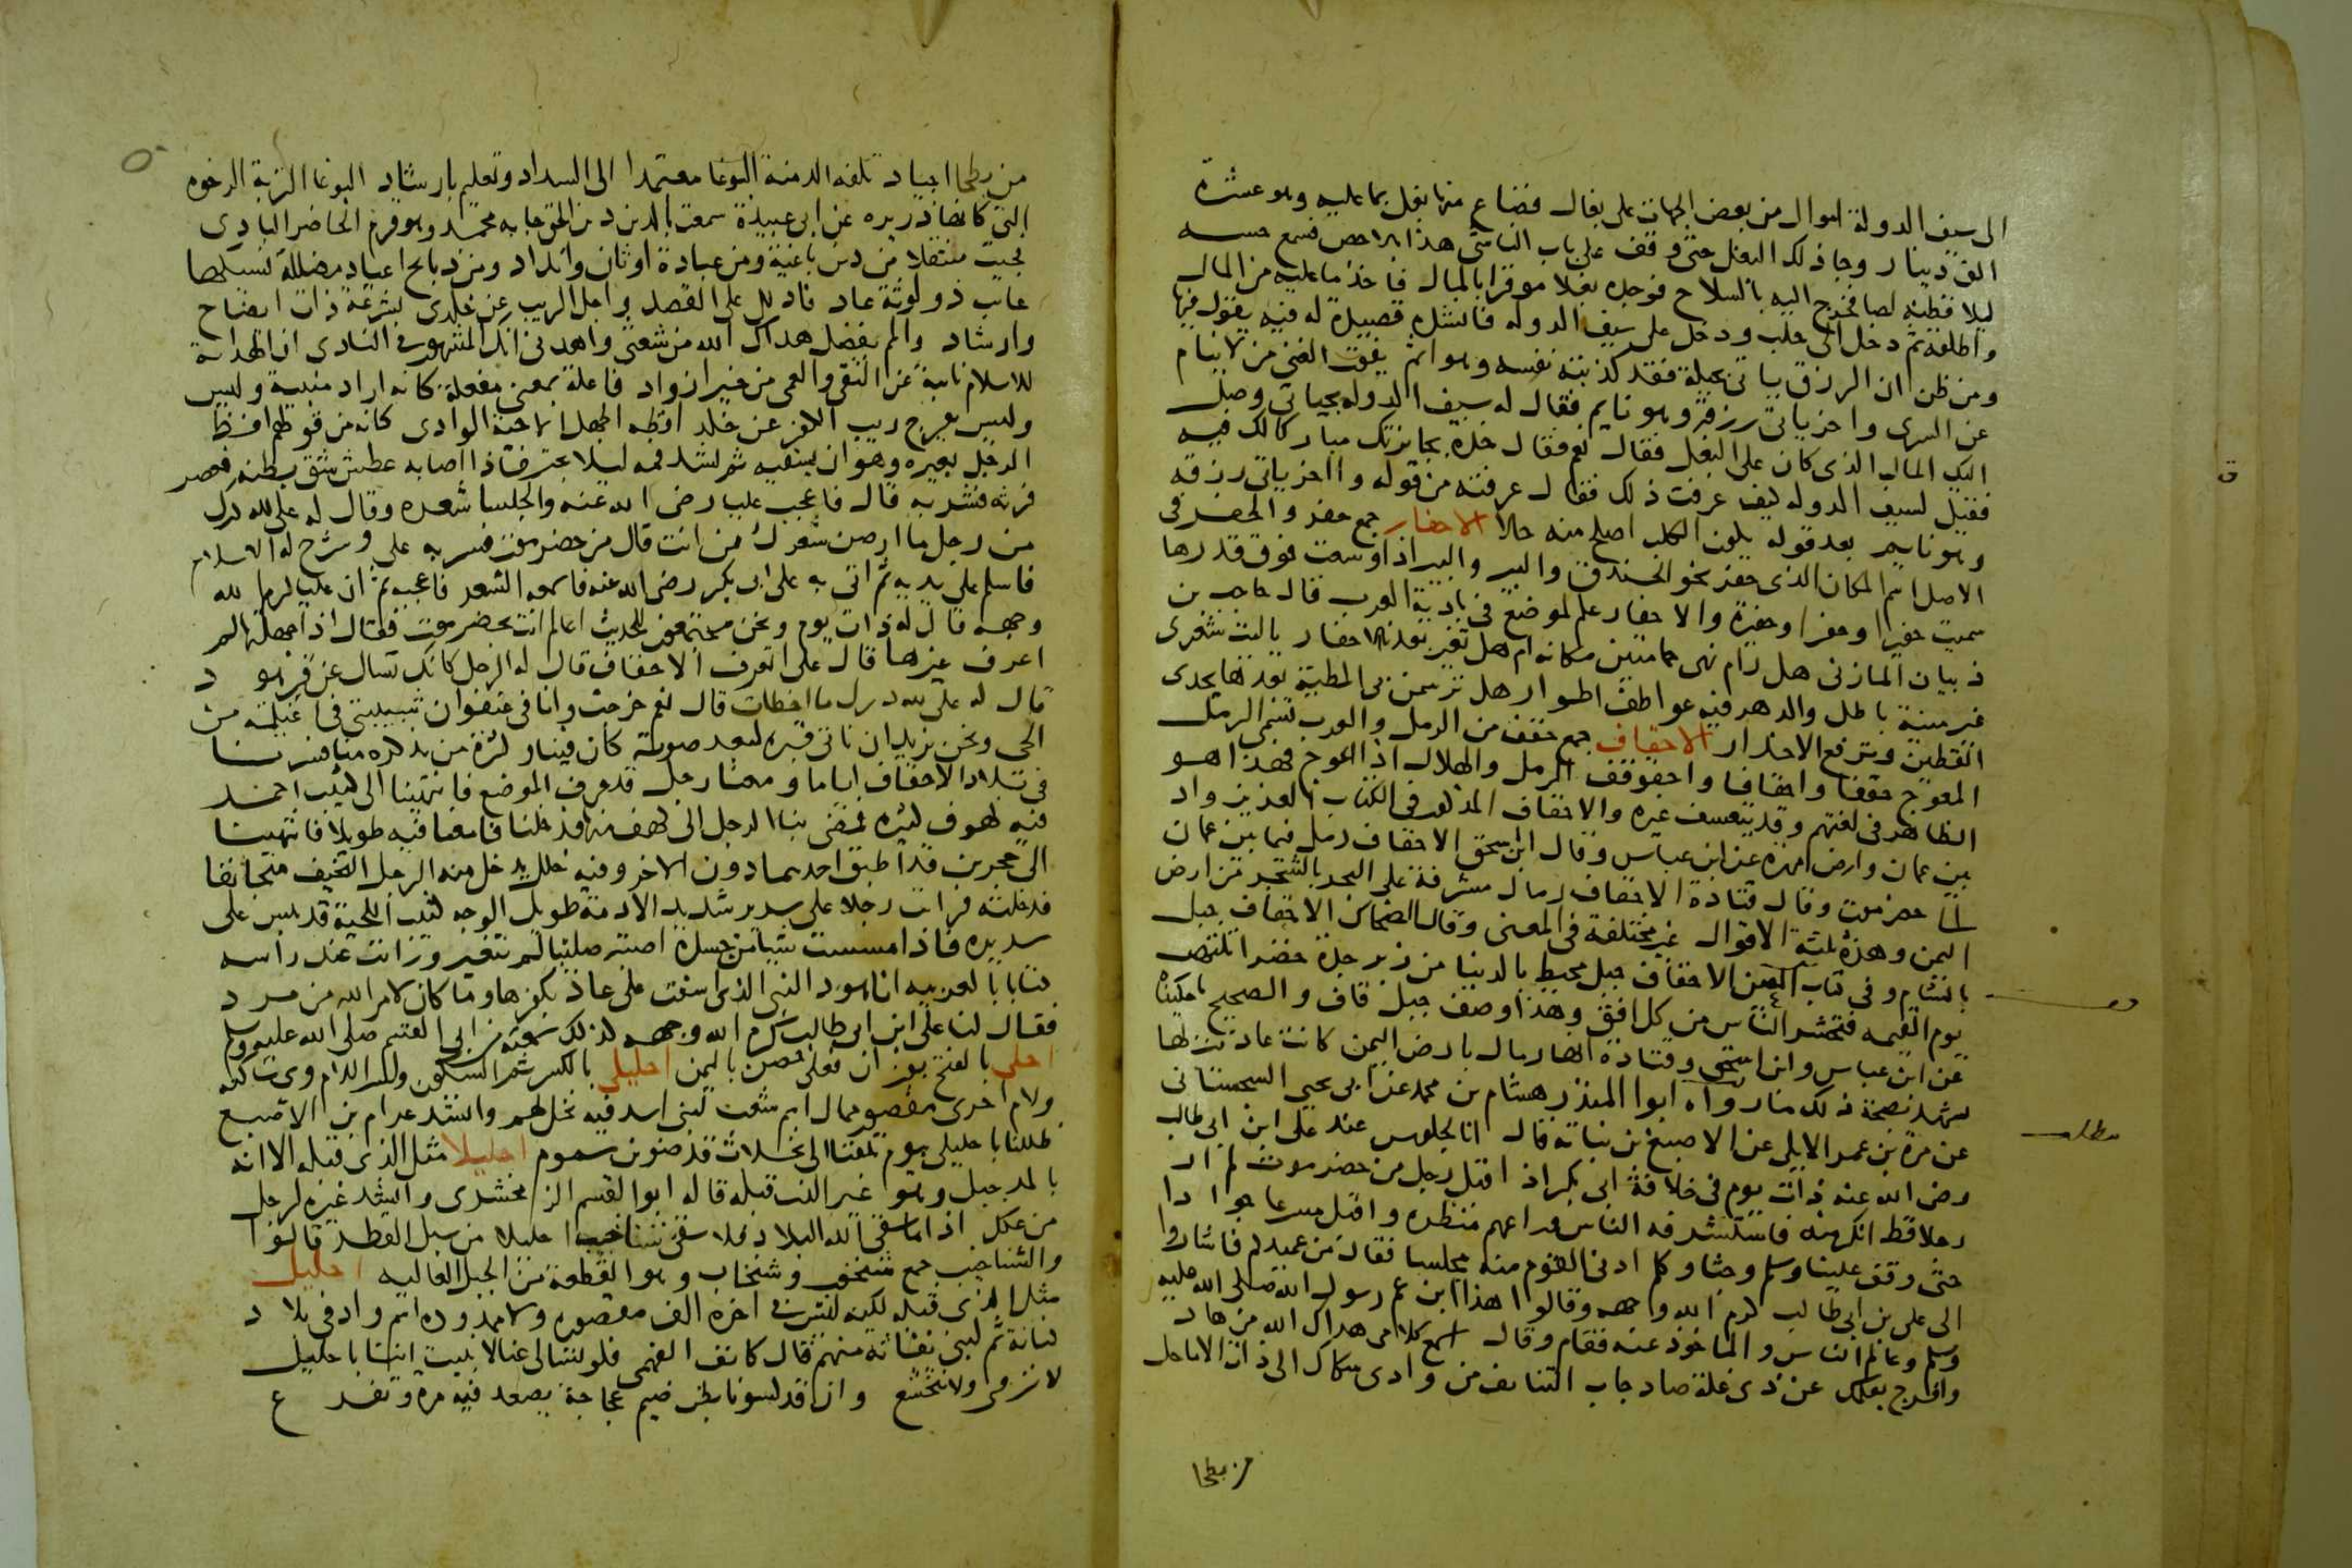 الى سيف الدولة اموال من بعض الجهات على بغال فضاع منها بغل بما عليه وهو عشرة
الف دينار وجا ذلك البغل حتى وقف على باب الناشئ هذا بالاحص فسمع حسه
ليلا فظنه لصا فخرج اليه بالسلاح فوجده بغلا موقرا بالمال فاخذ ما عليه من المال
واطلقه ثم دخل الى حلب ودخل على سيف الدوله فانشده قصيدة له فيه يقول فيها
ومن ظن ان الرزق ياتى بحيلة فقد كذبته نفسه وهو اثم يفوت الغنى من لا ينام
عن السرى واخر ياتى رزقه وهو نايم فقال له سيف الدوله بحياتى وصل
اليك المال الذى كان على البغل فقال نعم فقال خذه بجايزتك مبارك لك فيه
فقيل لسيف الدوله كيف عرفت ذلك فقال عرفته من قوله واخر ياتى رزقه
وهو نايم بعد قوله يكون الكلب اصلح منه حالا الاحفار جمع حفر والحفر فى
الاصل اسم المكان الذى حفر نحو الخندق والبير والبير اذا وسعت فوق قدرها
سميت حفيرا وحفرا وحفيرة والاحفار علم لموضع فى بادية العرب قال حاجب بن
ذبيان المازنى هل رام نهى حمامتين مكانه ام هل تغير بعدنا الاحفار ياليت شعرى
غير منية باطل والدهر فيه عواطف اطوار هل ترسمن بى المطية بعدها يحدى
القطين وترفع الاخدار الاحقاف جمع حقف من الرمل والعرب تسمى الرمل
المعوج حقفا واحقافا واحقوقف الرمل والهلال اذا اعوج فهذا هو
الظاهر فى لغتهم وقد يتعسف غيره والاحقاف المذكور فى الكتاب العزيز واد
بين عمان وارض مهره عن ابن عباس وقال ابن اسحق الاحقاف رمل فيما بين عمان
الى حضرموت وقال قتادة الاحقاف رمال مشرفة على البحر بالشحر من ارض
اليمن وهذه ثلثة الاقوال غير مختلفة فى المعنى وقال الضحاك الاحقاف جبل
بالشام وفى كتاب العين الاحقاف جبل محيط بالدنيا من زبرجدة خضرا تلتهب
يوم القيمه فتحشر الناس من كل افق وهذا وصف جبل قاف والصحيح ماحكيناه
عن ابن عباس وابن اسحق وقتادة انها رمال بارض اليمن كانت عاد تنزلها
يشهد بصحة ذلك ما رواه ابوا المنذر هشام بن محمد عن ابى يحيى السجستانى
عن مرة بن عمر الابلى عن الاصبغ بن نباته قال انا لجلوس عند على ابن ابى طالب
رضى الله عنه ذات يوم فى خلافة ابى بكر اذ اقبل رجل من حضرموت لم ار
رجلا قط انكر منه فاستشرفه الناس وراعهم منظره واقبل مسرعا جوادا
حتى وقف علينا وسلم وجثا وكلم ادنى القوم منه مجلسا فقال من عميدكم فاشاروا
الى على بن ابى طالب كرم الله وجهه وقالوا هذا ابن عم رسول الله صلى الله عليه
وسلم وعالم الناس والماخوذ عنه فقام وقال اسمع كلامى هداك الله من هاد
وافرج بعلمك عن ذى غلة صاد جاب التنايف من وادى سكاك الى ذات الاماحل
من بطحا
مطلب
من بطحا اجياد تلفه الدمنة البوغا معتمدا الى السداد وتعليم بارشاد البوغا التربة الرخوه
التى كانها ذريره عن ابى عبيدة سمعت بالدين دين الحق جا به محمد وهو قرم الحاضر البادى
فجيت منتقلا من دين باغية ومن عبادة اوثان وانداد ومن ذبايح اعياد مضللة نسيكها
غايب ذو لوثة عاد فادلل على القصد واجل الريب عن خلدى بشرعة ذات ايضاح
وارشاد والمم بفضل هداك الله من شعثى واهدنى انك المشهور فى النادى ان الهداية
للاسلام نايبة عن التقى والعمى من خير ازواد فاعلة بمعنى مفعلة كانه اراد منيبة وليس
وليس يفرج ريب الكفر عن خلد افظه الجهل الا حية الوادى كانه من قوطهم افتظ
الرجل بعيره وهو ان يسقيه ثم يشد فمه ليلا يجتر فاذا اصابه عطش شق بطنه فعصر
فرثه فشربه قال فاعجب عليا رضى الله عنه والجلسا شعره وقال له على لله درك
من رجل ما ارصن شعرك من انت قال من حضرموت فسر به على وشرح له الاسلام
فاسلم على يديه ثم اتى به على ابى بكر رضى الله عنه فاسمعه الشعر فاعجبه ثم ان عليا كرم الله
وجهه قال له ذات يوم ونحن مجتمعون للحديث اعالم انت بحضرموت فقال اذا جهلتها لم
اعرف غيرها قال على اتعرف الاحقاف قال له الرجل كانك تسال عن قبر هود
قال له على لله درك ما اخطات قال نعم خرجت وانا فى عنفوان شبيبتى فى اغيلمة من
الحى ونحن نريد ان ناتى قبره لبعد صوته كان فينا وكثرة من يذكره منا فسرنا
فى بلاد الاحقاف اياما ومعنا رجل قد عرف الموضع فانتهينا الى كثيب احمر
فيه كهوف كثيره فمضى بنا الرجل الى كهف منها فدخلنا فامعنا فيه طويلا فانتهينا
الى حجرين قد اطبق احدهما دون الاخر وفيه خلل يدخل منه الرجل النحيف متجانفا
فدخلته فرايت رجلا على سرير شديد الادمة طويل الوجه كثيب اللحية قد يبس على
سريره فاذا مسست شيا من جسده اصبته صليبا لم يتغير ورايت عند راسه
كتابا بالعربيه انا هود النبى الذى اسفت على عاد بكفرها وما كان لامر الله من مرد
فقال لنا على ابن ابى طالب كرم الله وجهه كذلك سمعته من ابى القسم صلى الله عليه وسلم
احلى بالفتح بوزن فعلى حصن باليمن احليلى بالكسر ثم السكون وكسر اللام وى ساكنه
ولام اخرى مقصور ممال اسم شعب لبنى اسد فيه نخل لهم وانشد عرام بن الاصبع
ظللنا باحليلى بيوم تلفنا الى نخلات قد ضوين سموم احليلا مثل الذى قبله الا انه
بالمد جبل وهو غير الذى قبله قاله ابوا القسم الزمخشرى وانشد غيره لرجل
من عكل اذا ما سقى الله البلاد فلا سقى شناخيب احليلا من سبل القطر قالوا
والشناخيب جمع شنخوب وشنخاب وهو القطعة من الجبل العاليه احليل
مثل الذى قبله لكنه ليس فى اخره الف مقصوره ولا ممدوده اسم واد فى بلاد
كنانة ثم لبنى نفاثة منهم قال كانف الفهمى فلو تسالى عنا لانبيت اننا باحليل
لا نزوى ولا نتخشع وان قد كسونا بطن ضيم عجاجة يصعد فيه مره وتفرع